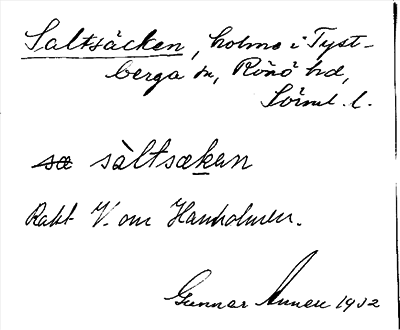 Saltsäcken, holme i Tyst-
berga sn, Rönö hd,
Sörml. l.
sæ sàltsækan
Rakt V. om Hamholmen.
Gunnar 1932